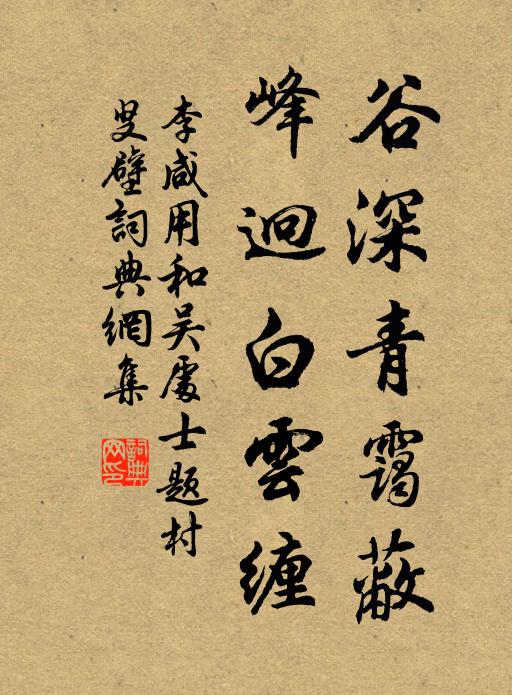 谷深青靄蔽
峰迴白雲纏
李咸用和吴處士题村
叟壁詞典網集
詞典网印